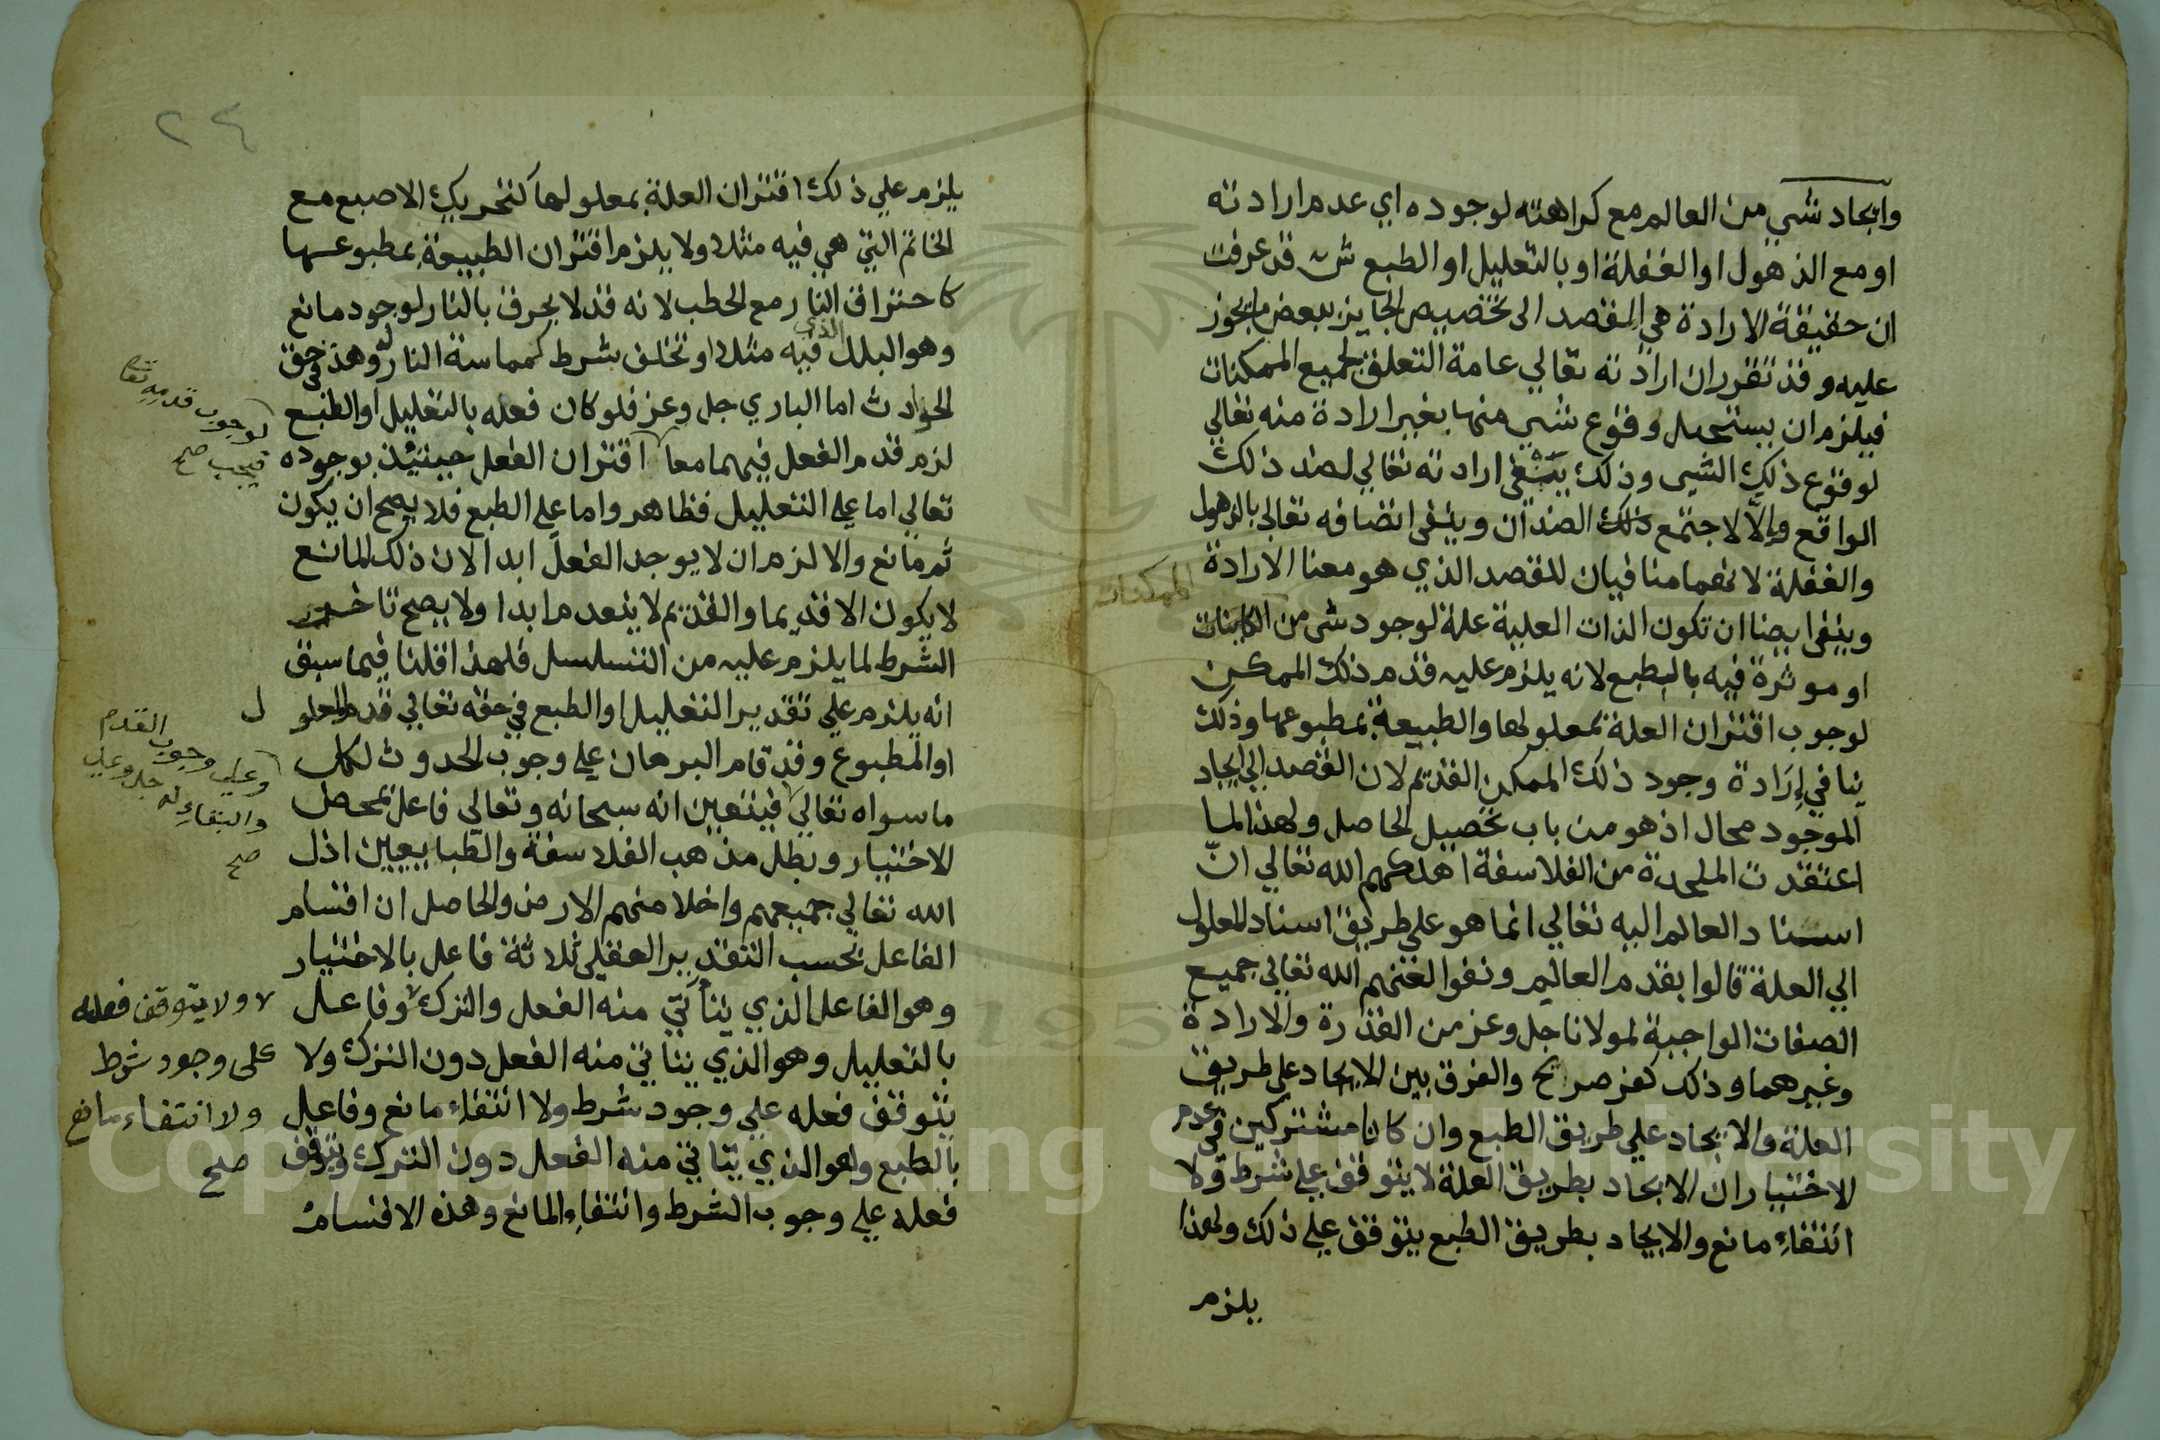 وايجاد شي من العالم مع كراهته لوجوده اي عدم ارادته
او مع الذهول او الغفلة او بالتعليل او الطبع ش قد عرفت
ان حقيقة الارادة هي القصد الى تخصيص الجايز ببعض ما يجوز
عليه وقد تقرر ان ارادته تعالي عامة التعلق بجميع الممكنات
فيلزم ان يستحيل وقوع شي منها بغير ارادة منه تعالي
لوقوع ذلك الشي وذلك ينفي ارادته تعالي لضد ذلك
الواقع والا لاجتمع ذلك الضدان وينفي اتصافه تعالي بالذهول
والغفلة لانهما منافيان للقصد الذي هو معنا الارادة
وينفي ايضا ان تكون الذات العلية علة لوجود شي من الكاينات
الممكنات
او موثرة فيه بالطبع لانه يلزم عليه قدم ذلك الممكن
لوجوب اقتران العلة بمعلولها والطبيعة بمطبوعها وذلك
ينافي ارادة وجود ذلك الممكن القديم لان القصد الي ايجاد
الموجود محال اذ هو من باب تحصيل الحاصل ولهذا لما
اعتقدت الملحدة من الفلاسفة اهلكهم الله تعالي ان
اسناد العالم اليه تعالي انما هو علي طريق اسناد المعلول
الي العلة قالوا بقدم العالم ونفوا لعنهم الله تعالي جميع
الصفات الواجبة لمولانا جل وعز من القدرة والارادة
وغيرهما وذلك كفر صريح والفرق بين الايجاد علي طريق
العلة والايجاد علي طريق الطبع وان كانا مشتركين في عدم
الاختيار ان الايجاد بطريق العلة لا يتوقف علي شرط ولا
انتفاء مانع والايجاد بطريق الطبع يتوقف علي ذلك ولهذا
يلزم
٢٤
يلزم علي ذلك اقتران العلة بمعلولها كتحريك الاصبع مع
الخاتم التي هي فيه مثلا ولا يلزم اقتران الطبيعة بمطبوعها
كاحتراق النار مع الحطب لانه قد لا يحرق بالنار لوجود مانع
وهو البلل الذي فيه مثلا او تخلف شرط كمماسة النار له وهذا في حق
الحوادث اما الباري جل وعز فلو كان فعله بالتعليل او الطبع
لزم قدم الفعل فيهما معا اقتران الفعل حينئذ بوجوده
لوجوب قدمه تعالي
فيجب صح
تعالي اما علي التعليل فظاهر واما علي الطبع فلا يصح ان يكون
ثم مانع والا لزم ان لا يوجد الفعل ابدا لان ذلك المانع
لا يكون الا قديما والقديم لا ينعدم ابدا ولا يصح تاخر
الشرط لما يلزم عليه من التسلسل فلهذا قلنا فيما سبق
انه يلزم علي تقدير التعليل او الطبع في حقه تعالي قدم المعلو
ل
او المطبوع وقد قام البرهان علي وجوب الحدوث لكل
ما سواه تعالي فيتعين انه سبحانه وتعالي فاعل بمحض
وعلي وجوب القدم
والبقاء له جل وعلي
صح
الاختيار وبطل مذهب الفلاسفة والطبايعيين اذل
الله تعالي جميعهم واخلا منهم الارض والحاصل ان اقسام
الفاعل بحسب التقدير العقلي ثلاثة فاعل بالاختيار
وهو الفاعل الذي يتأتي منه الفعل والترك وفاعل
ولا يتوقف فعله
على وجود شرط
ولا انتفاء مانع
صح
بالتعليل وهو الذي يتأتي منه الفعل دون الترك ولا
يتوقف فعله علي وجود شرط ولا انتفاء مانع وفاعل
بالطبع وهو الذي يتاتي منه الفعل دون الترك ويتوقف
فعله علي وجوب الشرط وانتفاء المانع وهذه الاقسام
Copyright © King Saud University